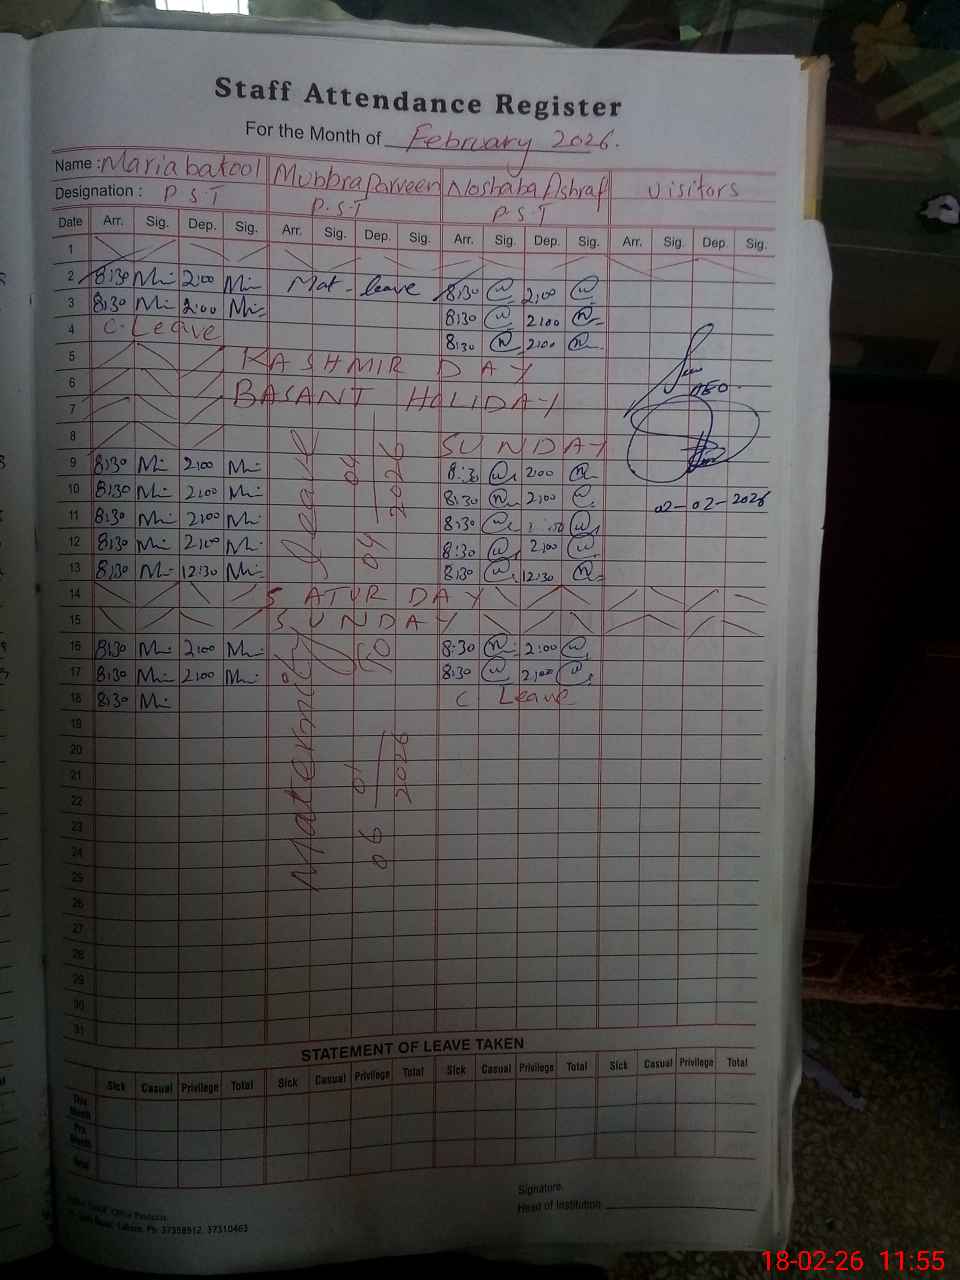 Staff Attendance Register
For the Month of February 2026.
Name : Maria batool Mubbra Parveen Noshaba Ashraf Visitors
Designation : P S T P.S.T P S T
Date Arr. Sig. Dep. Sig. Arr. Sig. Dep. Sig. Arr. Sig. Dep. Sig. Arr. Sig. Dep. Sig.
1
2 8:30 2:00 Mat - leave 8:30 2:00
3 8:30 2:00 8:30 2:00
4 C. Leave 8:30 2:00
5 KASHMIR DAY
6 BASANT HOLIDAY
AEO.
7
8 SUNDAY
9 8:30 2:00 8:30 2:00
10 8:30 2:00 8:30 2:00
02-02-2026
11 8:30 2:00 8:30
12 8:30 2:00 8:30 2:00
13 8:30 12:30 8:30 12:30
14 SATURDAY
15 SUNDAY
16 8:30 2:00 8:30 2:00
17 8:30 2:00 8:30 2:00
18 8:30 C Leave
19
20
21
22
23
24
25
26
27
28
29
30
31
Maternity Leave
06 01 2026 To 04 04 2026
STATEMENT OF LEAVE TAKEN
Sick Casual Privilege Total Sick Casual Privilege Total Sick Casual Privilege Total Sick Casual Privilege Total
This Month
Pre. Month
Total
Signature.
Head of Institution
Lahore. Ph: 37358912, 37310463
18-02-26 11:55